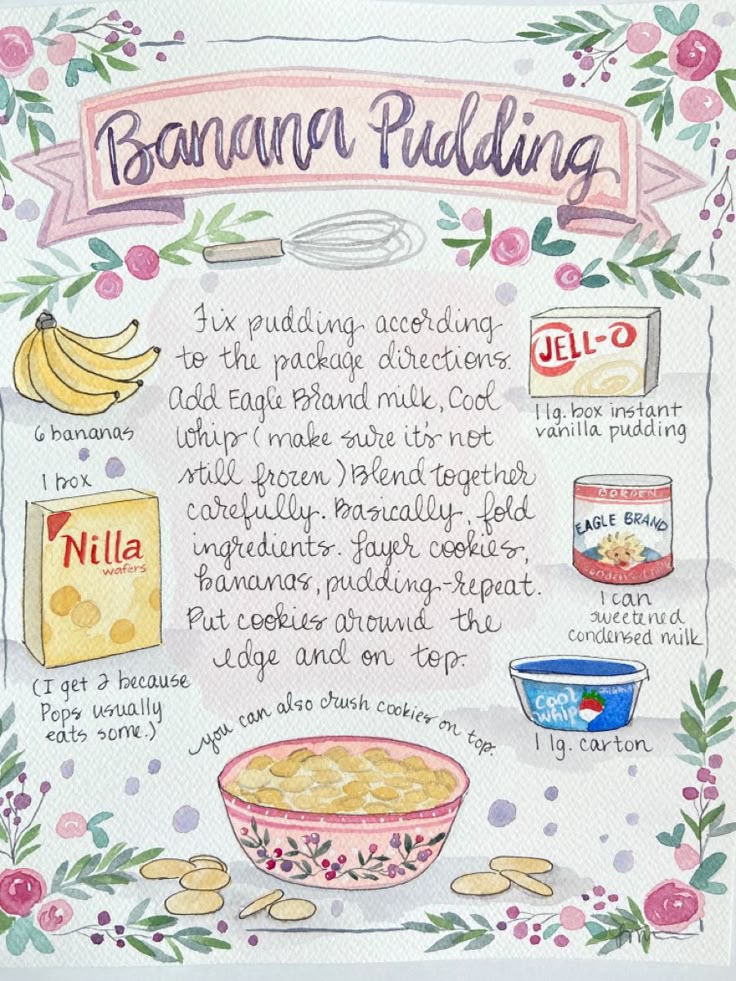 Banana Pudding
Fix pudding according
to the package directions.
Add Eagle Brand milk, Cool
Whip (make sure it's not
still frozen) Blend together
carefully. Basically, fold
ingredients. Layer cookies,
bananas, pudding-repeat.
Put cookies around the
edge and on top.
you can also crush cookies on top.
6 bananas
1 box
Nilla
wafers
(I get 2 because
Pops usually
eats some.)
JELL-O
1 lg. box instant
vanilla pudding
BORDEN
EAGLE BRAND
1 can
sweetened
condensed milk
Cool
Whip
1 lg. carton